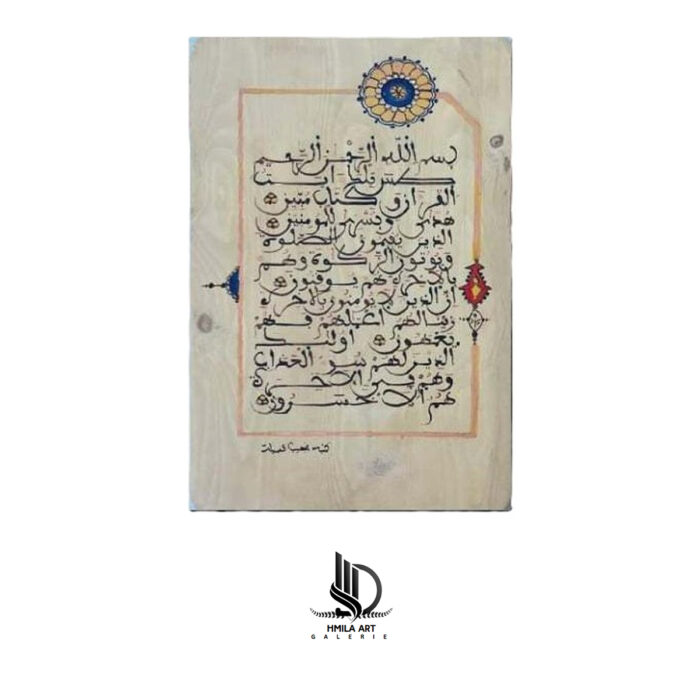 بسم الله الرحمن الرحيم
طس تلك ايت
القرءان وكتاب مبين
هدى وبشرى للمومنين
الذين يقيمون الصلوة
ويوتون الزكوة وهم
بالاخرة هم يوقنون
ان الذين لا يومنون بالاخرة
زينا لهم اعملهم فهم
يعمهون اوليك
الذين لهم سو العذاب
وهم في الاخرة
هم الاخسرون
HMILA ART
GALERIE